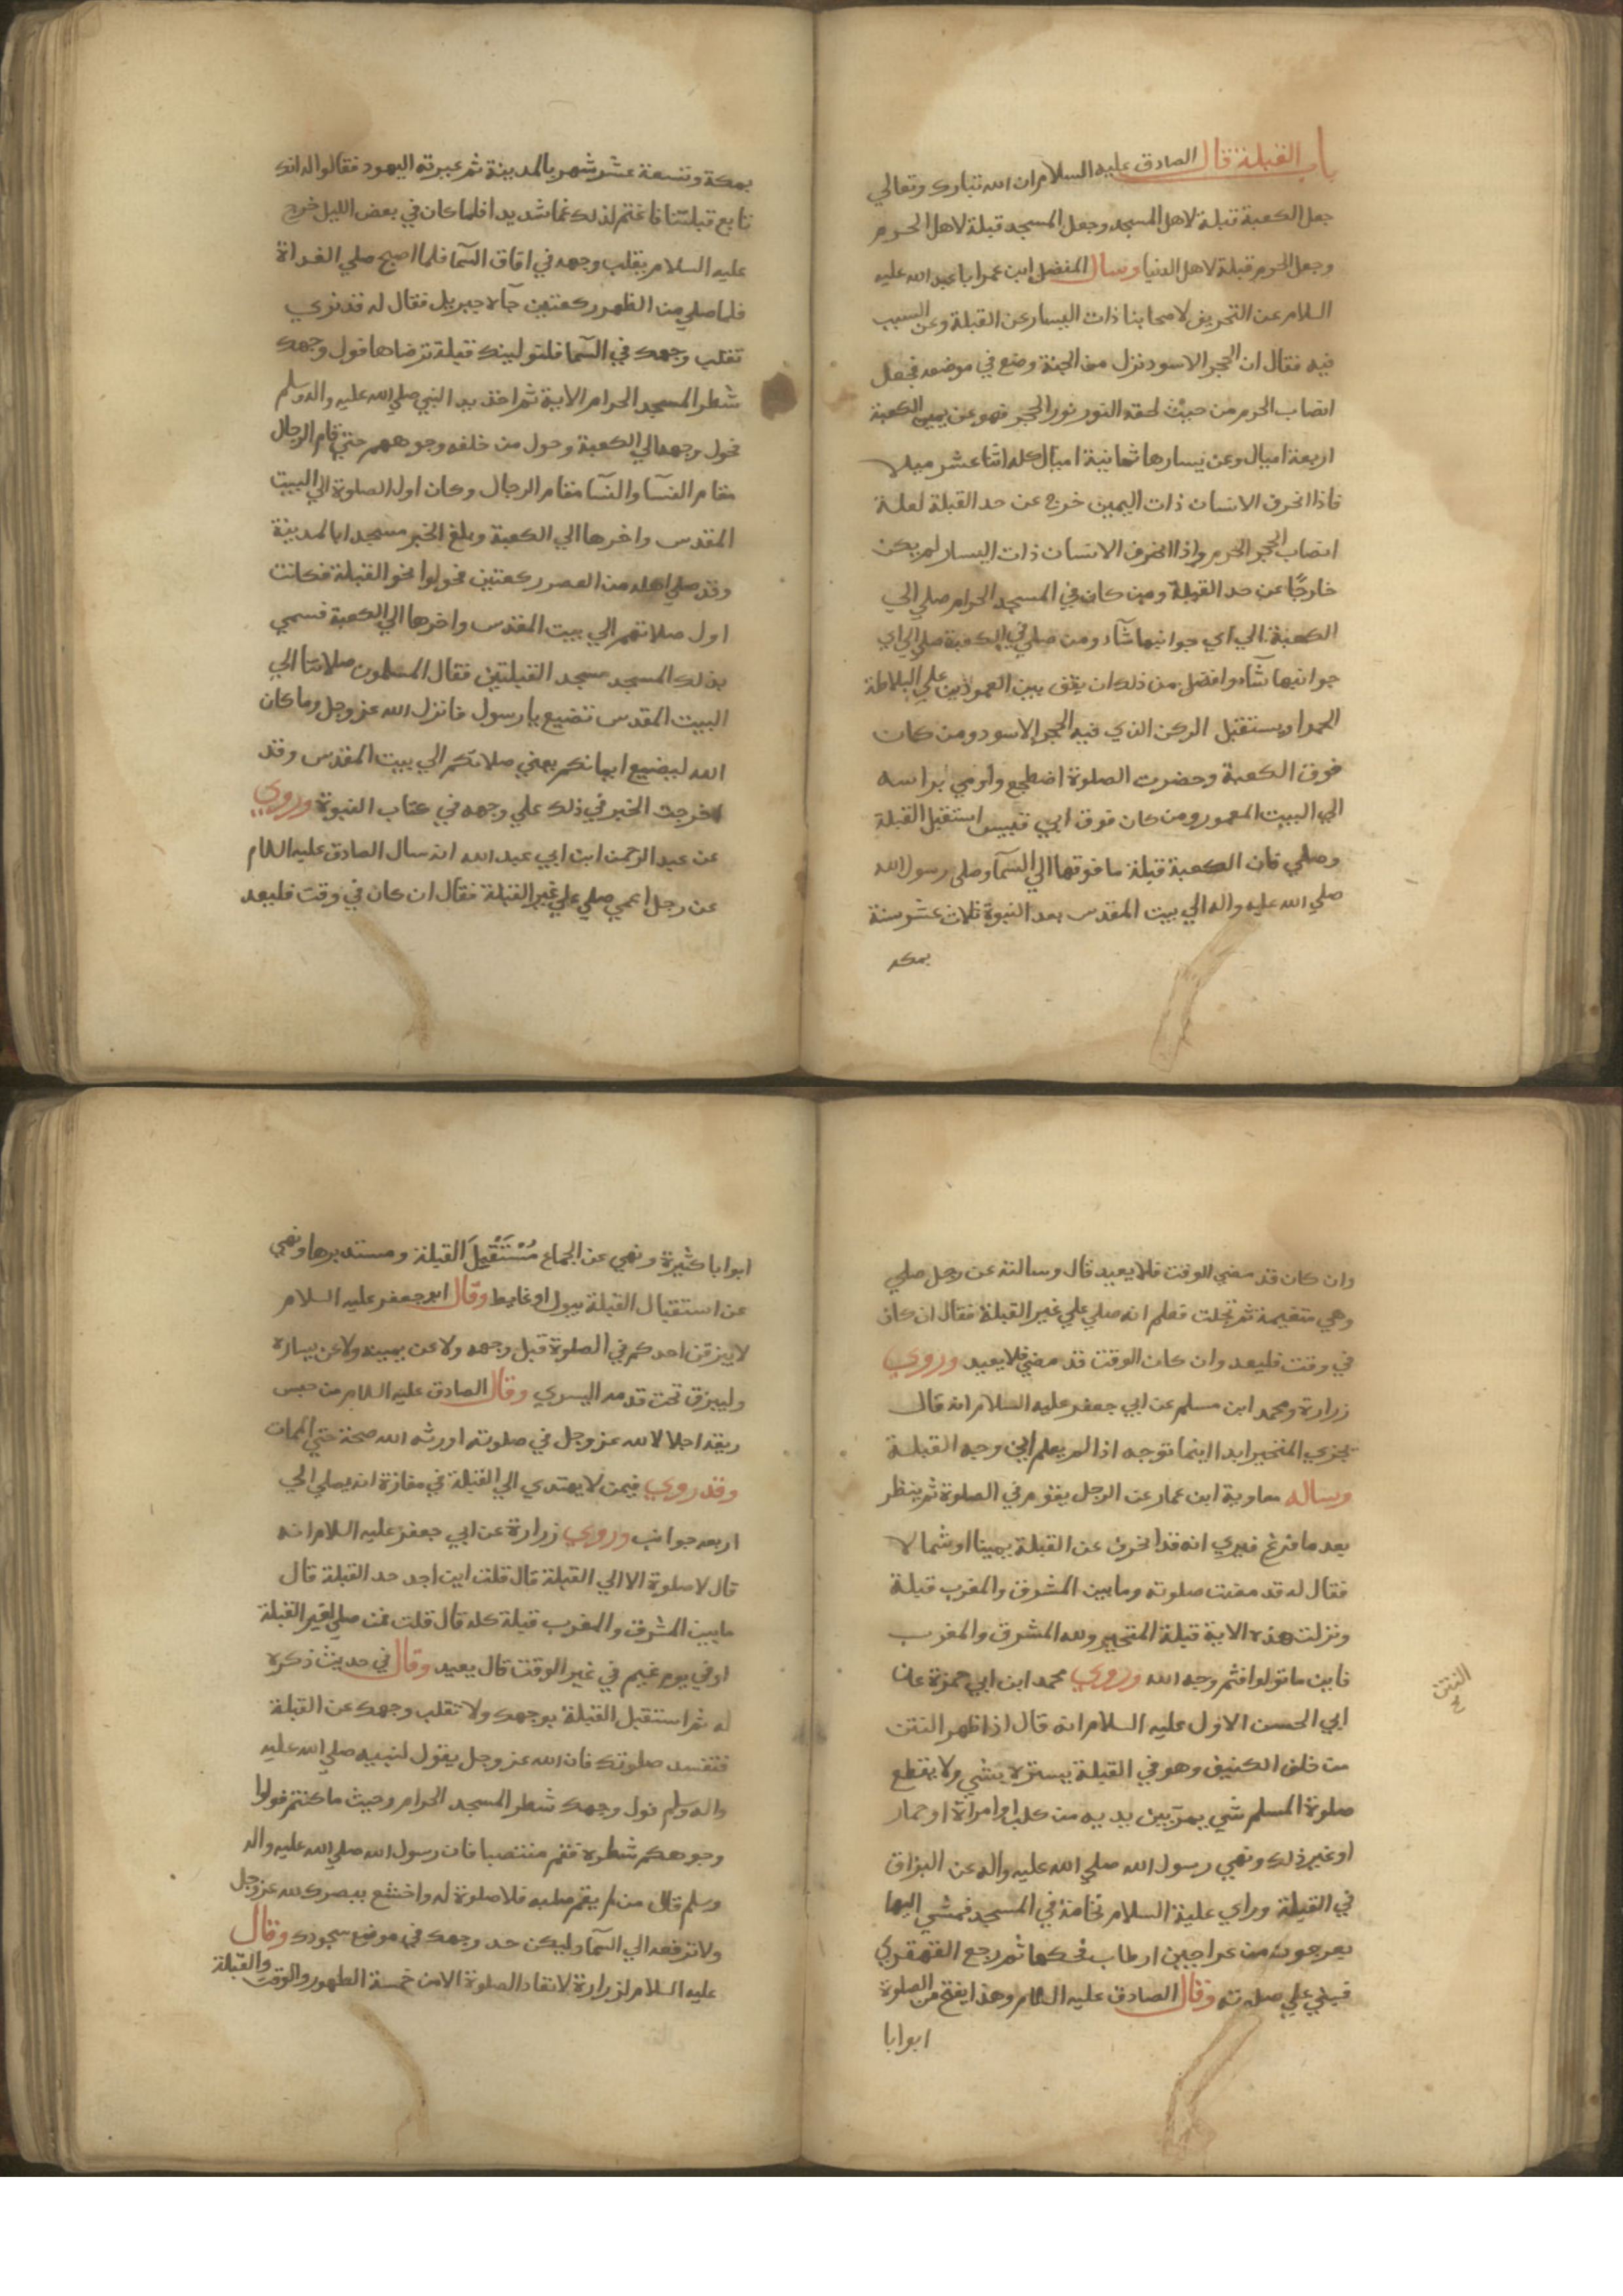 باب القبلة قال الصادق عليه السلام ان الله تبارك وتعالي
جعل الكعبة قبلة لاهل المسجد وجعل المسجد قبلة لاهل الحرم
وجعل الحرم قبلة لاهل الدنيا وسال المفضل ابن عمر ابا عبد الله عليه
السلام عن التحريف لاصحابنا ذات اليسار عن القبلة وعن السبب
فيه فقال ان الحجر الاسود نزل من الجنة وضع في موضعه فجعل
انصاب الحرم من حيث لحقه النور نور الحجر فهو عن يمين الكعبة
اربعة اميال وعن يسارها ثمانية اميال كله اثنا عشر ميلا
فاذا انحرف الانسان ذات اليمين خرج عن حد القبلة لعلة
انصاب الحجر الحرم واذا انحرف الانسان ذات اليسار لم يكن
خارجًا عن حد القبلة ومن كان في المسجد الحرام صلي الي
الكعبة الي اي جوانبها شآء ومن صلي في الكعبة صلي الي اي
جوانبها شآء وافضل من ذلك ان يقف بين العمودين علي البلاطة
الحمرا ويستقبل الركن الذي فيه الحجر الاسود ومن كان
فوق الكعبة وحضرت الصلوة اضطجع واومي براسه
الي البيت المعمور ومن كان فوق ابي قبيس استقبل القبلة
وصلي فان الكعبة قبلة ما فوقها الي السمآ وصلي رسول الله
صلي الله عليه واله الي بيت المقدس بعد النبوة ثلاث عشر سنة
بمكة
بمكة وتسعة عشر شهر بالمدينة ثم عيرته اليهود فقالوا له انك
تابع قبلتنا فاغتم لذلك غما شديدا فلما كان في بعض الليل خرج
عليه السلام يقلب وجهه في افاق السمآ فلما اصبح صلي الغداة
فلما صلي من الظهر ركعتين جآءه جبريل فقال له قد نري
تقلب وجهك في السما فلنولينك قبلة ترضاها فول وجهك
شطر المسجد الحرام الاية ثم اخذ بيد النبي صلي الله عليه واله وسلم
فحول وجهه الي الكعبة وحول من خلفه وجوههم حتي قام الرجال
مقام النسآ والنسآ مقام الرجال وكان اول الصلوة الي البيت
المقدس واخرها الي الكعبة وبلغ الخبر مسجدا بالمدينة
وقد صلي اهله من العصر ركعتين فحولوا نحو القبلة فكانت
اول صلاتهم الي بيت المقدس واخرها الي الكعبة فسمي
بذلك المسجد مسجد القبلتين فقال المسلمون صلاتنا الي
البيت المقدس تضيع يا رسول فانزل الله عز وجل وما كان
الله ليضيع ايمانكم يعني صلاتكم الي بيت المقدس وقد
اخرجت الخبر في ذلك علي وجهه في كتاب النبوة وروي
عن عبد الرحمن ابن ابي عبد الله انه سال الصادق عليه السلام
عن رجل اعمي صلي علي غير القبلة فقال ان كان في وقت فليعد
وان كان قد مضي الوقت فلا يعيد قال وسالته عن رجل صلي
وهي متغيمة ثم تجلت فعلم انه صلي علي غير القبلة فقال ان كان
في وقت فليعد وان كان الوقت قد مضي فلا يعيد وروي
زرارة ومحمد ابن مسلم عن ابي جعفر عليه السلام انه قال
يجزي المتحير ابدا اينما توجه اذا لم يعلم اين وجه القبلة
وساله معاوية ابن عمار عن الرجل يقوم في الصلوة ثم ينظر
بعد ما فرغ فيري انه قد انحرف عن القبلة يمينا او شمالا
فقال له قد مضت صلوته وما بين المشرق والمغرب قبلة
ونزلت هذه الاية قبلة المتحير ولله المشرق والمغرب
فاين ما تولوا فثم وجه الله وروي محمد ابن ابي حمزة عن
ابي الحسن الاول عليه السلام انه قال اذا ظهر النتن
من خلف الكنيف وهو في القبلة يستره بشي ولا يقطع
صلوة المسلم شي يمر بين يديه من كلب او امراة او حمار
او غير ذلك ونهي رسول الله صلي الله عليه واله عن البزاق
في القبلة وراي علية السلام نخامة في المسجد فمشي اليها
بعرجون من عراجين ارطاب فحكها ثم رجع القهقري
فبني علي صلوته وقال الصادق عليه السلام وهذا يفتح من الصلوة
ابوابا
النتن
ابوابا كثيرة ونهي عن الجماع مُسْتَقْبِلَ القبلة ومستدبرها ونهي
عن استقبال القبلة ببول او غايط وقال ابو جعفر عليه السلام
لا يبزقن احدكم في الصلوة قبل وجهه ولا عن يمينه ولا عن يساره
وليبزق تحت قدمه اليسري وقال الصادق عليه السلام من حبس
ريقه اجلالا لله عز وجل في صلوته اورثه الله صحة حتي الممات
وقد روي فيمن لا يهتدي الي القبلة في مفازة انه يصلي الي
اربعه جوانب وروي زرارة عن ابي جعفر عليه السلام انه
قال لا صلوة الا الي القبلة قال قلت اين اجد حد القبلة قال
ما بين المشرق والمغرب قبلة كله قال قلت فمن صلي لغير القبلة
او في يوم غيم في غير الوقت قال يعيد وقال في حديث ذكره
له ثم استقبل القبلة بوجهك ولا تقلب وجهك عن القبلة
فتفسد صلوتك فان الله عز وجل يقول لنبيه صلي الله عليه
واله وسلم فول وجهك شطر المسجد الحرام وحيث ما كنتم فولوا
وجوهكم شطره فقم منتصبا فان رسول الله صلي الله عليه واله
وسلم قال من لم يقم صلبه فلا صلوة له واخشع ببصرك لله عز وجل
ولا ترفعه الي السمآ وليكن حد وجهك في موضع سجودك وقال
عليه السلام لزرارة لا تعاد الصلوة الا من خمسة الطهور والوقت والقبلة